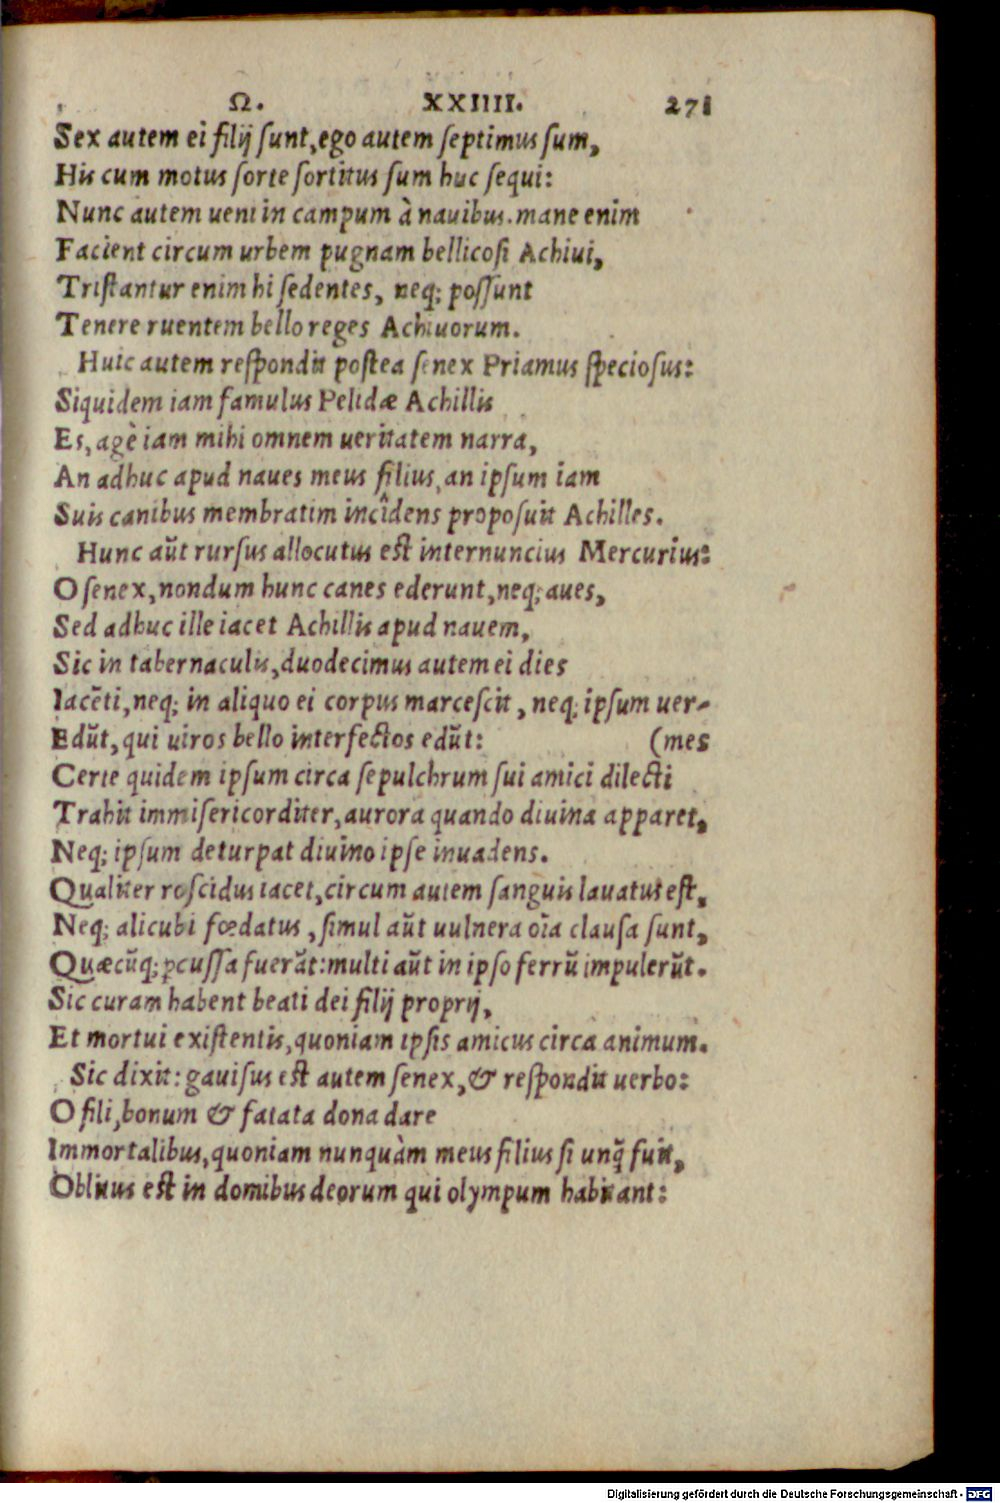 Ω. XXIIII. 271
Sex autem ei filij ſunt, ego autem ſeptimus ſum,
His cum motus ſorte ſortitus ſum huc ſequi:
Nunc autem ueni in campum à nauibus. mane enim
Facient circum urbem pugnam bellicoſi Achiui,
Triſtantur enim hi ſedentes, neq; poſſunt
Tenere ruentem bello reges Achiuorum.
Huic autem reſpondit poſtea ſenex Priamus ſpecioſus:
Siquidem iam famulus Pelidæ Achillis
Es, agè iam mihi omnem ueritatem narra,
An adhuc apud naues meus filius, an ipſum iam
Suis canibus membratim incîdens propoſuit Achilles.
Hunc aūt rurſus allocutus eſt internuncius Mercurius:
O ſenex, nondum hunc canes ederunt, neq; aues,
Sed adhuc ille iacet Achillis apud nauem,
Sic in tabernaculis, duodecimus autem ei dies
Iacēti, neq; in aliquo ei corpus marceſcit, neq; ipſum uer-
Edūt, qui uiros bello interfectos edūt: (mes
Certe quidem ipſum circa ſepulchrum ſui amici dilecti
Trahit immiſericorditer, aurora quando diuina apparet,
Neq; ipſum deturpat diuino ipſe inuadens.
Qualiter roſcidus iacet, circum autem ſanguis lauatus eſt,
Neq; alicubi fœdatus, ſimul aūt uulnera oīa clauſa ſunt,
Quæcūq; ꝑcuſſa fuerāt: multi aūt in ipſo ferrū impulerūt.
Sic curam habent beati dei filij proprij,
Et mortui exiſtentis, quoniam ipſis amicus circa animum.
Sic dixit: gauiſus eſt autem ſenex, & reſpondit uerbo:
O fili, bonum & fatata dona dare
Immortalibus, quoniam nunquàm meus filius ſi unq̃ fuit,
Oblitus eſt in domibus deorum qui olympum habitant:
Digitalisierung gefördert durch die Deutsche Forschungsgemeinschaft - DFG